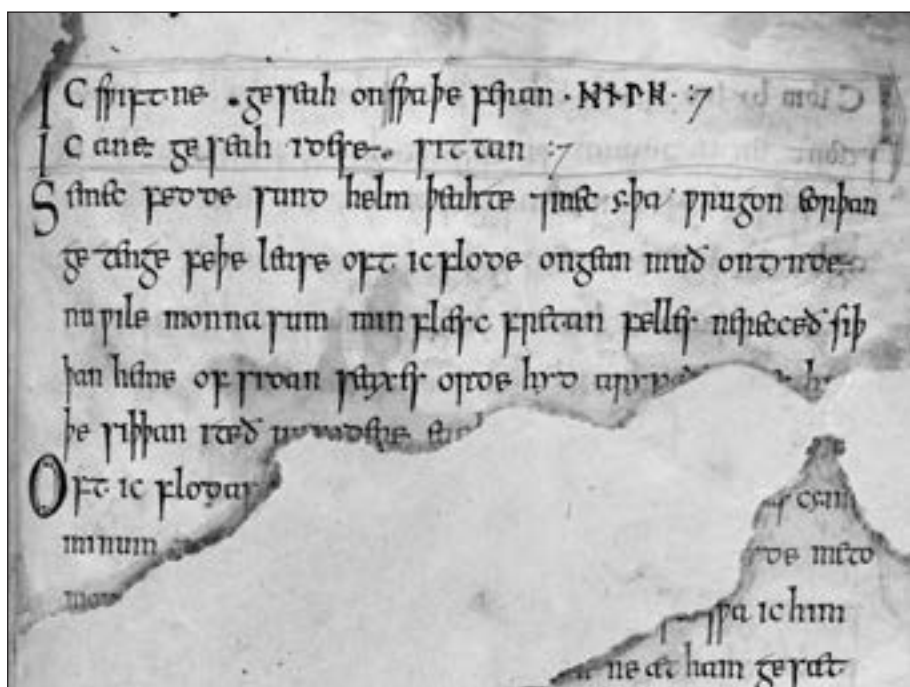 IC swiftne . geseah onswaþe feran · ᛞᚾᛚᚻ · :7
IC ane geseah idese . sittan :7
Sæmec fedde sund helm þeahte 7mec yþa wrugon eorþan
ge tenge feþe lease oft ic flode ongean muð ontynde
nu wile monna sum min flæsc fretan felles nerecceð siþ
þan heme of sidan seaxes orde hyd arypeð
þe siþþan iteð unsodene
Oft ic flodas cynn
minum
swa ic him
ne æt ham gesæt